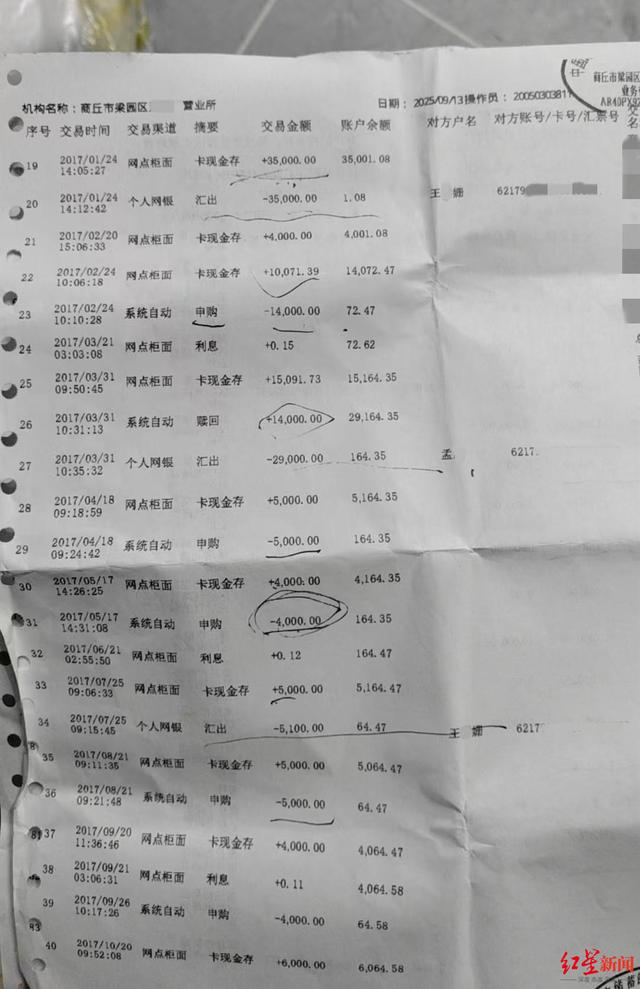 商丘市梁园区
业务
AR4DPX92
机构名称：商丘市梁园区 营业所 日期：2025/09/13操作员：2005030381
序号 交易时间 交易渠道 摘要 交易金额 账户余额 对方户名 对方账号/卡号/汇票号
19 2017/01/24 14:05:27 网点柜面 卡现金存 +35,000.00 35,001.08
20 2017/01/24 14:12:42 个人网银 汇出 -35,000.00 1.08 王 姗 62179
21 2017/02/20 15:06:33 网点柜面 卡现金存 +4,000.00 4,001.08
22 2017/02/24 10:06:18 网点柜面 卡现金存 +10,071.39 14,072.47
23 2017/02/24 10:10:28 系统自动 申购 -14,000.00 72.47
24 2017/03/21 03:03:08 网点柜面 利息 +0.15 72.62
25 2017/03/31 09:50:45 网点柜面 卡现金存 +15,091.73 15,164.35
26 2017/03/31 10:31:13 系统自动 赎回 +14,000.00 29,164.35
27 2017/03/31 10:35:32 个人网银 汇出 -29,000.00 164.35 孟 6217.
28 2017/04/18 09:18:59 网点柜面 卡现金存 +5,000.00 5,164.35
29 2017/04/18 09:24:42 系统自动 申购 -5,000.00 164.35
30 2017/05/17 14:26:25 网点柜面 卡现金存 +4,000.00 4,164.35
31 2017/05/17 14:31:08 系统自动 申购 -4,000.00 164.35
32 2017/06/21 02:55:50 网点柜面 利息 +0.12 164.47
33 2017/07/25 09:06:33 网点柜面 卡现金存 +5,000.00 5,164.47
34 2017/07/25 09:15:45 个人网银 汇出 -5,100.00 64.47 王 姗 6217
35 2017/08/21 09:11:35 网点柜面 卡现金存 +5,000.00 5,064.47
36 2017/08/21 09:21:48 系统自动 申购 -5,000.00 64.47
37 2017/09/20 11:36:46 网点柜面 卡现金存 +4,000.00 4,064.47
38 2017/09/21 03:06:31 网点柜面 利息 +0.11 4,064.58
39 2017/09/26 10:17:26 系统自动 申购 -4,000.00 64.58
40 2017/10/20 09:52:08 网点柜面 卡现金存 +6,000.00 6,064.58
红星新闻